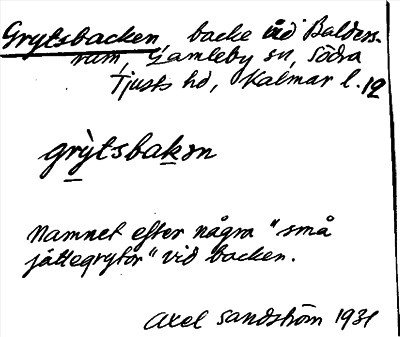 Grytsbacken, backe vid Balders-
rum, Gamleby sn, Södra
Tjusts hd, Kalmar l. 12
grỳtsbakən
Namnet efter några "små
jättegrytor" vid backen.
Axel Sandström 1931